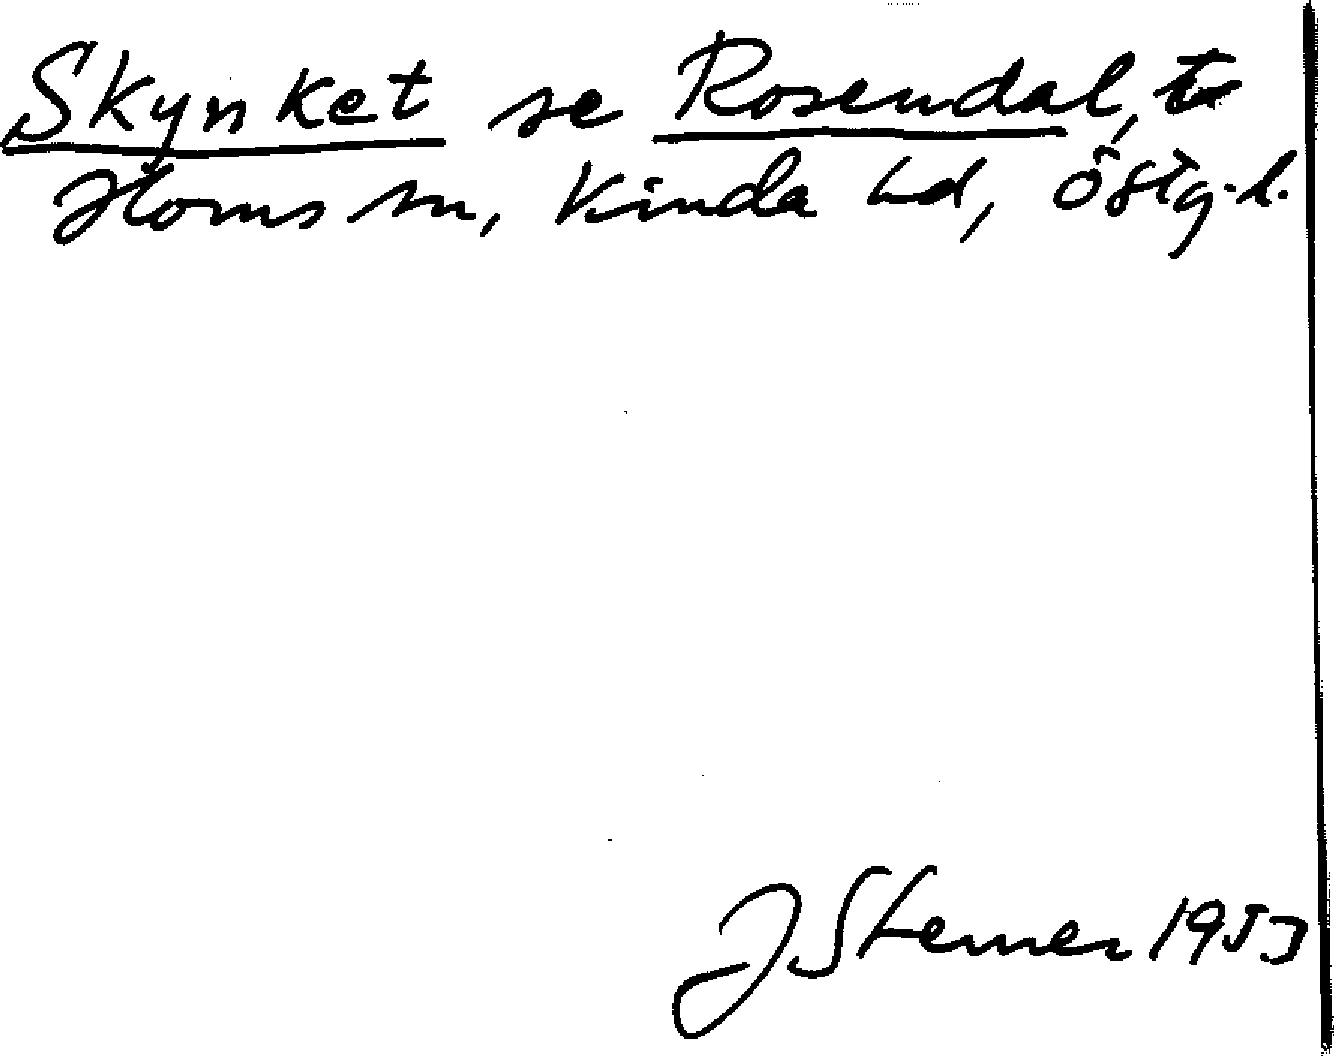 Skynket se Rosendal, to
Horns sn, Kinda hd, Östg.l.
J Sterner 1953